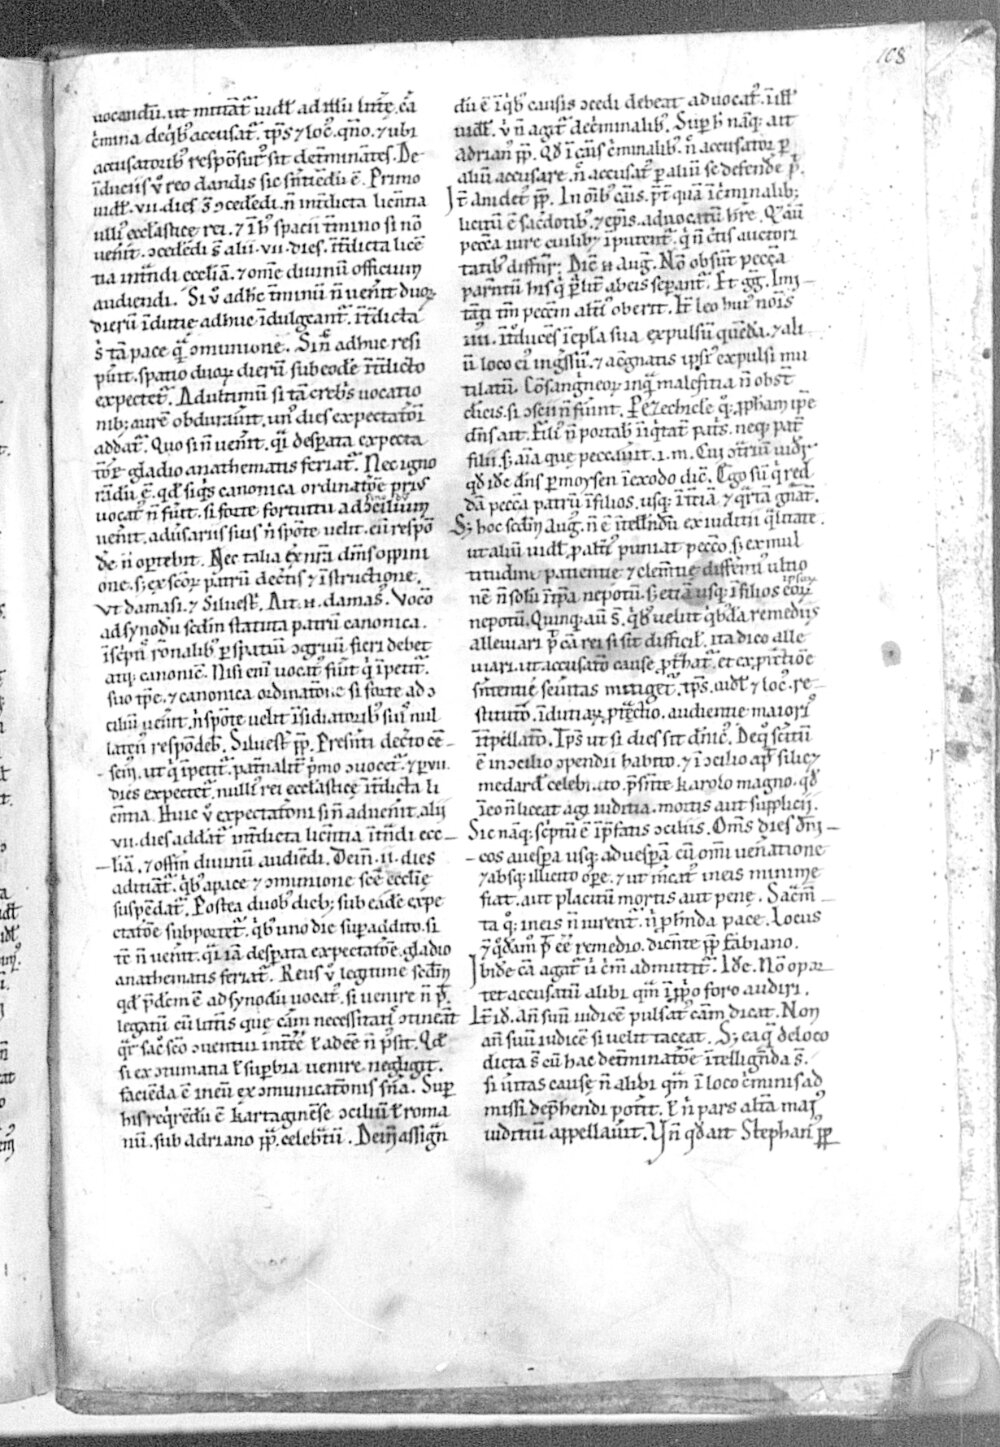 108
uocandū. ut mittat᷑ uidł ad illū litt̄ę. cā
c̓mina deq̇b᷒ accusat᷑. tp̄s ⁊ loc᷒. qn̄o. ⁊ ubi
accusatorib᷒ respōsur᷒ sit det̄minātes. De
īduciis ů reo dandis sic sn̄tiēdū ē. Primo
uidł. vii. dies s̄ ɔcedēdi. n̄ int̄dicta licentia
ulli᷒ eccl̄astice rei. ⁊ ī h᷒ spacii t̄mino si nō
uen̄it. ɔcedēdi s̄ alii. vii. dies. īt̄dicta licē
tia int̄ndi eccl̄iā. ⁊ om̄e diuinū officium
audiendi. Si ů adhc̄ t̄minū n̄ uen̄it duoꝝ
dierū īdutie adhuc īdulgeant᷑. īt̄dicta
s̓ tā pace q̄ ɔmunione. Sin̄ adhuc resi
pūit. spatio duoꝝ dierū sub eodē īt̄dicto
expectet᷑. Ad ultimū si tā creb̓s uocatio
nib; aurē obdurauit. un᷒ dies expectatōi
addat᷑. Quo si n̄ uen̄it. q̄i desꝑata expecta
tōe gladio anathematis feriat᷑. Nec igno
rādū ē. qđ siq̇s canonica ordinatōe pri᷒
uocat᷒ n̄ fūit. si forte fortuitu ad ɔcilium
uen̄it. adūsariis suis n̓ spōte uelit. eū respō
dē n̄ oportebit. Nec talia ex nr̄a dīm᷒ oppini
one. s; ex scōꝝ patrū dec̄tis ⁊ īstructione.
Vt damasi. ⁊ Siluest̓. Ait. n̄. damas᷒. Vocō
ad synodū scdm statuta patrū canonica.
īsc̓ptū rōnalib᷒ ꝑ spatiū ɔgruū fieri debet
atq; canonicē. Nisi eni᷒ uocat᷒ fūit q̓ īpetit᷑.
suo tp̄e. ⁊ canonica ordinatone si forte ad ɔ
ciliū uen̄it. n̓ spōte uelit īsidiatorib᷒ suis nul
laten᷒ respōdeb̄. Siluest̓ pp̄. Presn̄ti dec̄to cē
sem᷒. ut q̓ īpetit᷑. patn̄alit̄ p̓mo ɔuocet᷑. ⁊ ꝑ vii.
dies expectet᷑. nulli᷒ rei eccl̄astice īt̄dicta li
cētia. Huic ů expectatoni si n̄ aduen̄it. alii
vii. dies addāt᷑ int̄dicta licentia īt̄ndi ecc
liā. ⁊ offm̄ diuinū audiēdi. Dein̄. ii. dies
aditiāt᷑. q̇b᷒ a pace ⁊ ɔmunione scē ecclīe
suspēdat᷑. Postea duob᷒ dieb; sub eadē expe
ctatōe subportet᷑. q̇b᷒ uno die suꝑaddito. si
tē n̄ uen̄it. q̄i iā desꝑata expectatōe. gladio
anathematis feriat᷑. Reus ů legitime sedm
qđ p̄dcm̄ ē ad synodū uocat᷒. si uenire n̄ p̄.
legatū cū litt̄is que cām necessitatis ɔtineāt
q̄r sac̓ scō ɔuentui int̄ēe ł adēe n̄ p̓sit. Qđ
si ex ɔtumatia ł suꝑbia uenire neglīgit.
faciēda ē ineū exɔmunicatonis sn̄ia. Suꝑ
his req̇rēdū ē kartaginēse ɔciliū ł roma
nū. sub adriano pp̄. celebt̄ū. Dein̄ assign̄
dū ē ī q̇b᷒ causis ɔcedi debeat aduocat᷒. ī ill̄
uidł. ů n̄ agit᷑ de c̓minalib᷒. Suꝑ h̓ nāq; ait
Adrian᷒ pp̄. Qđ ī cāis c̓minalib᷒. n̄ accusator ꝑ
aliū accusare. n̄ accusat᷒ ꝑ aliū se defende p̄.
It̄ anicłet᷒ pp̄. In ōnib᷒ cāis. p̄t quā ī c̓minalib;
licitū ē sac̓dotib᷒. ⁊ ep̄is. aduocatū hr̄e. Q̄ aū
pecc̄a iure ciuilib᷒ īputent᷑. q̇n̄ c̄tis auctori
tatib᷒ diffin̄r. Dic̄ n̄ aug̓. Nō obsūt pecc̄a
parn̄tū his q̇ ꝑ lit̄ ab eis seꝑant᷑. Et gg̓. Imi
tāti tm̄ pecc̄m alt̄i᷒ oberit. It̄ leo hui᷒ nōis
iiii. īt̓duces̄ ī ep̄la sua expulsū quēda. ⁊ ali
ū loco ei᷒ ing̓ssū. ⁊ ac̓gnatis ipsi᷒ expulsi mu
tilatū. Cōsang̓neoꝝ inq̄ malefitia n̄ obst̄
cłicis. si ɔscii n̄ fūint. P̄ ezechiełe q̊. ꝓpham ipe
dn̄s ait. Fili᷒ n̄ portab̄ īiq̇tāt̄ pat̓s. neq; pat̄
filii. s; aīa que peccau̓it. i.m. Cui ɔt̓riū uidr̄
qđ idē dn̄s ꝑ moysen ī exodo dic̄. Ego sū q̓ red
dā pecc̄a patrū ī filios. usq; ī t̓tiā ⁊ q̄rtā gn̄at̄.
S; hoc scdm aug̓. n̄ ē ītell̄ndū ex iuditii q̄litate.
ut aliū uidł. ꝓ alt̓i᷒ puniat pecc̄o. s; ex mul
titudine patientie ⁊ clem̄tie differim᷒ ultio
nē n̄ solū īt̄pa nepotū. s; etiā usq; ī filios eoꝝ ipsoꝝ
nepotū. Quinq; aū s̄. q̇b᷒ uelut q̇b᷒da remediis
alleuiari p̄ cā rei si sit difficił. ita dico alle
uiari. ut accusato cause. p̄t̓hat᷑. et ex p̄t̓ctiōe
sn̄tentie seūitas mitiget᷑. tp̄s. uidł ⁊ loc᷒. re
stitutō. īdutiaꝝ. p̄t̓ectio. audientie maiori᷒
īt̄pellatō. Tp̄s ut si dies sit dn̄ic᷒. De q̊ sc̓itū
ē in ɔcilio ɔpendii habito. ⁊ ī ɔcilio ap̄ silic᷒
medardū celebrato. p̄snte karolo magno. qđ
ī eo n̄ liceat agi iuditia. mortis aut supplicii.
Sic nāq; sc̓ptū ē ī p̄fatis ɔciliis. Om̄s dies dn̄i
cos a uesꝑa usq; ad uesꝑā cū om̄i uen̄atione
⁊ absq; illicito oꝑe. ⁊ ut m̄cat᷒ in eis minime
fiat. aut placitū mortis aut pene. Sac̄m̄
ta q̊; in eis n̄ iurent᷑. n̓ p̄ h̄nda pace. Locus
⁊ q̊dam᷒ p̄ ēē remedio. dicēte pp̄ fabiano.
Ibidē cā agat᷑ ů c̓m̄ admittit᷑. Idē. Nō opor
tet accusatū alibi q̄m ī ꝓp̓o foro audiri.
It̄ id̄. an̄ suū iudicē pulsat᷒ cām dicat. Non
an̄ suū iudicē si uelit taceat. S; ea q̄ de loco
dicta s̄ cū hac det̄minatōe ītelligēda s̄.
si ūitas cause n̄ alibi q̄m ī loco c̓minis ad
missi dep̄hendi pot̄it. ł n̓ pars alt̄a mai᷒
iuditiū appellau̓it. Vn̄ qđ ait Stephan᷒ pp̄